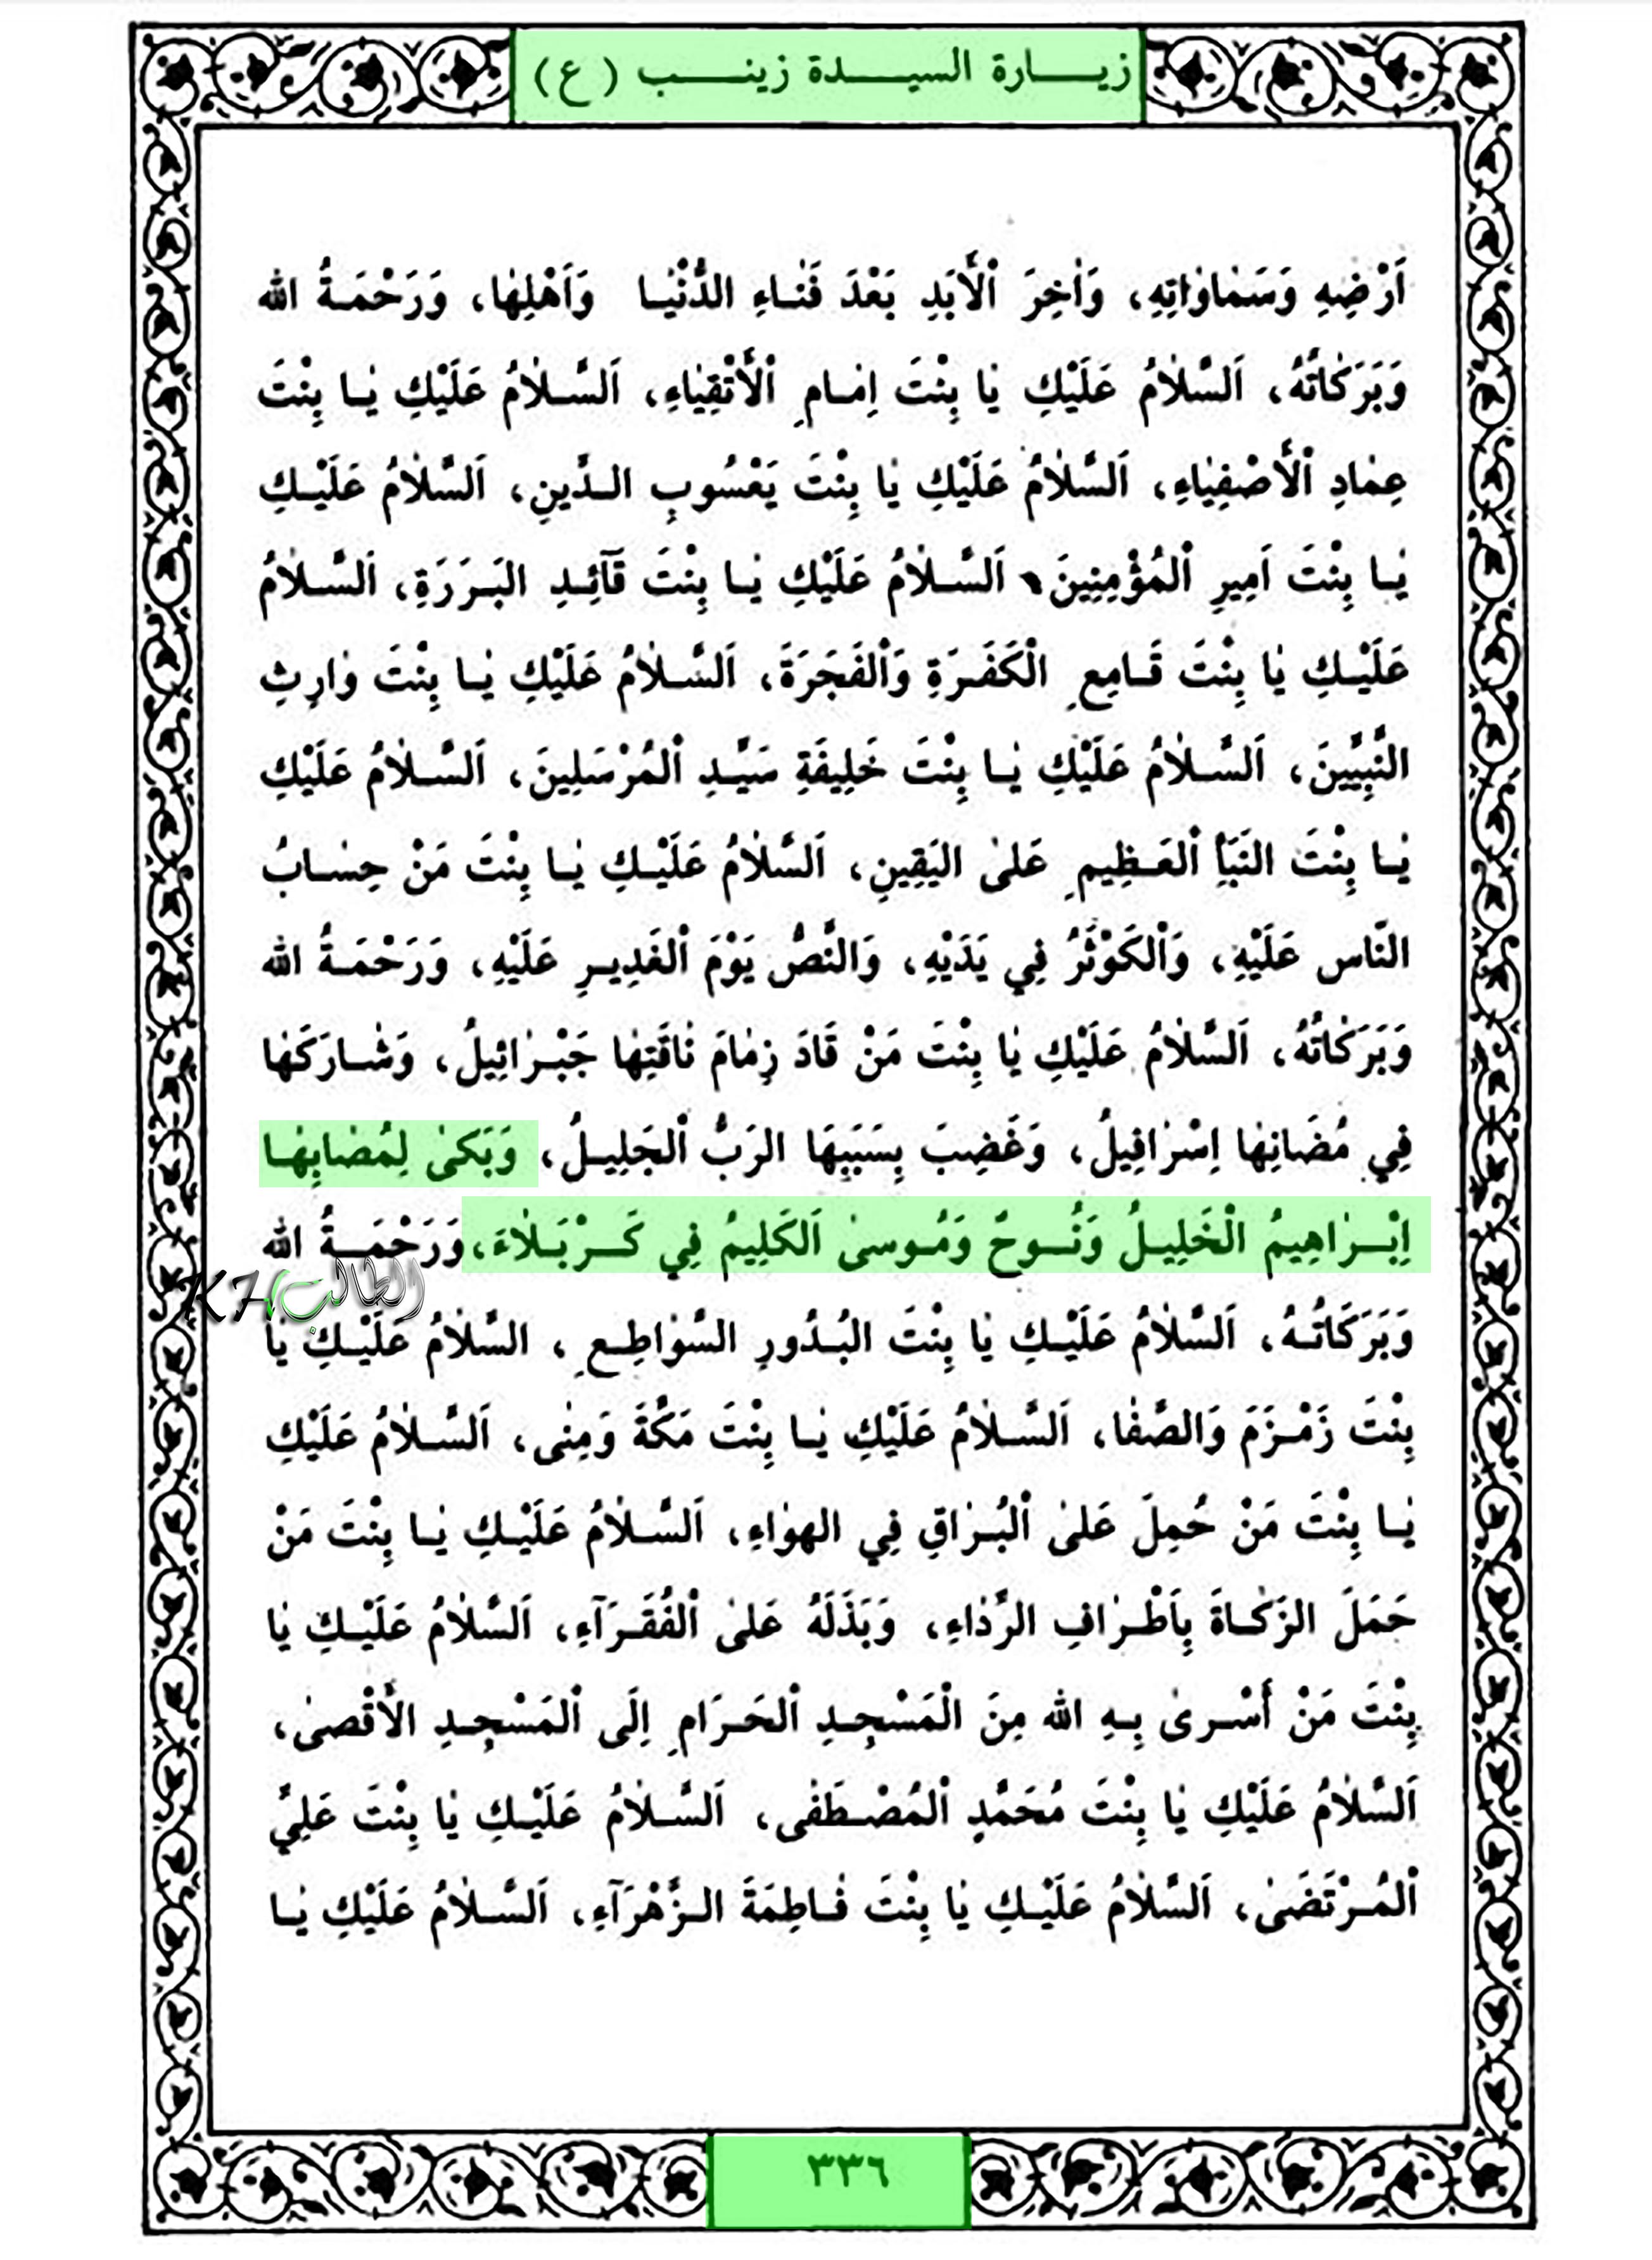 زيـارة السيـدة زينـب (ع)
اَرْضِهِ وَسَمٰاوٰاتِهِ، وَاٰخِرَ اْلأَبَدِ بَعْدَ فَنٰاءِ الدُّنْيٰا وَاَهْلِهٰا، وَرَحْمَةُ الله
وَبَرَكٰاتُهُ، اَلسَّلاٰمُ عَلَيْكِ يٰا بِنْتَ اِمٰامِ اْلأَتْقِيٰاءِ، اَلسَّلاٰمُ عَلَيْكِ يٰا بِنْتَ
عِمٰادِ اْلأَصْفِيٰاءِ، اَلسَّلاٰمُ عَلَيْكِ يٰا بِنْتَ يَعْسُوبِ الدِّينِ، اَلسَّلاٰمُ عَلَيْكِ
يٰا بِنْتَ اَمِيرِ اْلمُؤْمِنِينَ، اَلسَّلاٰمُ عَلَيْكِ يٰا بِنْتَ قَآئِدِ البَرَرَةِ، اَلسَّلاٰمُ
عَلَيْكِ يٰا بِنْتَ قَامِعِ الْكَفَرَةِ وَاْلفَجَرَةَ، اَلسَّلاٰمُ عَلَيْكِ يٰا بِنْتَ وٰارِثِ
النَّبِيِّينَ، اَلسَّلاٰمُ عَلَيْكِ يٰا بِنْتَ خَلِيفَةِ سَيِّدِ اْلمُرْسَلِينَ، اَلسَّلاٰمُ عَلَيْكِ
يٰا بِنْتَ النَبَأِ اْلعَظِيمِ عَلىٰ اليَقِينِ، اَلسَّلاٰمُ عَلَيْكِ يٰا بِنْتَ مَنْ حِسٰابُ
النّاس عَلَيْهِ، وَاْلكَوْثَرُ فِي يَدَيْهِ، وَالنَّصُّ يَوْمَ اْلغَدِيرِ عَلَيْهِ، وَرَحْمَةُ الله
وَبَرَكٰاتُهُ، اَلسَّلاٰمُ عَلَيْكِ يٰا بِنْتَ مَنْ قَادَ زِمٰامَ نٰاقَتِهٰا جَبْرٰائِيلُ، وَشٰارَكَهٰا
فِي مُصَابِهٰا اِسْرٰافِيلُ، وَغَضِبَ بِسَبَبِهَا الرَبُّ اْلجَلِيلُ، وَبَكىٰ لِمُصٰابِهٰا
اِبْرٰاهِيمُ الْخَلِيلُ وَنُوحٌ وَمُوسىٰ اَلكَلِيمُ فِي كَرْبَلاٰءَ، وَرَحْمَةُ الله
الطالب KH
وَبَرَكَاتُهُ، اَلسَّلاٰمُ عَلَيْكِ يٰا بِنْتَ البُدُورِ السَّوٰاطِعِ، السَّلاٰمُ عَلَيْكِ يٰا
بِنْتَ زَمْزَمَ وَالصَّفٰا، اَلسَّلاٰمُ عَلَيْكِ يٰا بِنْتَ مَكَّةَ وَمِنٰى، اَلسَّلاٰمُ عَلَيْكِ
يٰا بِنْتَ مَنْ حُمِلَ عَلىٰ اْلبُرٰاقِ فِي الهوٰاءِ، اَلسَّلاٰمُ عَلَيْكِ يٰا بِنْتَ مَنْ
حَمَلَ الزَكٰاةَ بِاَطْرٰافِ الرِّدٰاءِ، وَبَذَلَهُ عَلىٰ اْلفُقَرَآءِ، اَلسَّلاٰمُ عَلَيْكِ يٰا
بِنْتَ مَنْ أَسْرىٰ بِهِ الله مِنَ الْمَسْجِدِ اْلحَرَامِ اِلَى اْلمَسْجِدِ الأَقْصىٰ،
اَلسَّلاٰمُ عَلَيْكِ يٰا بِنْتَ مُحَمَّدٍ اْلمُصْطَفٰى، اَلسَّلاٰمُ عَلَيْكِ يٰا بِنْتَ عَلِيٍّ
اْلمُرْتَضَىٰ، اَلسَّلاٰمُ عَلَيْكِ يٰا بِنْتَ فٰاطِمَةَ الزَّهْرَآءِ، اَلسَّلاٰمُ عَلَيْكِ يٰا
٣٣٦